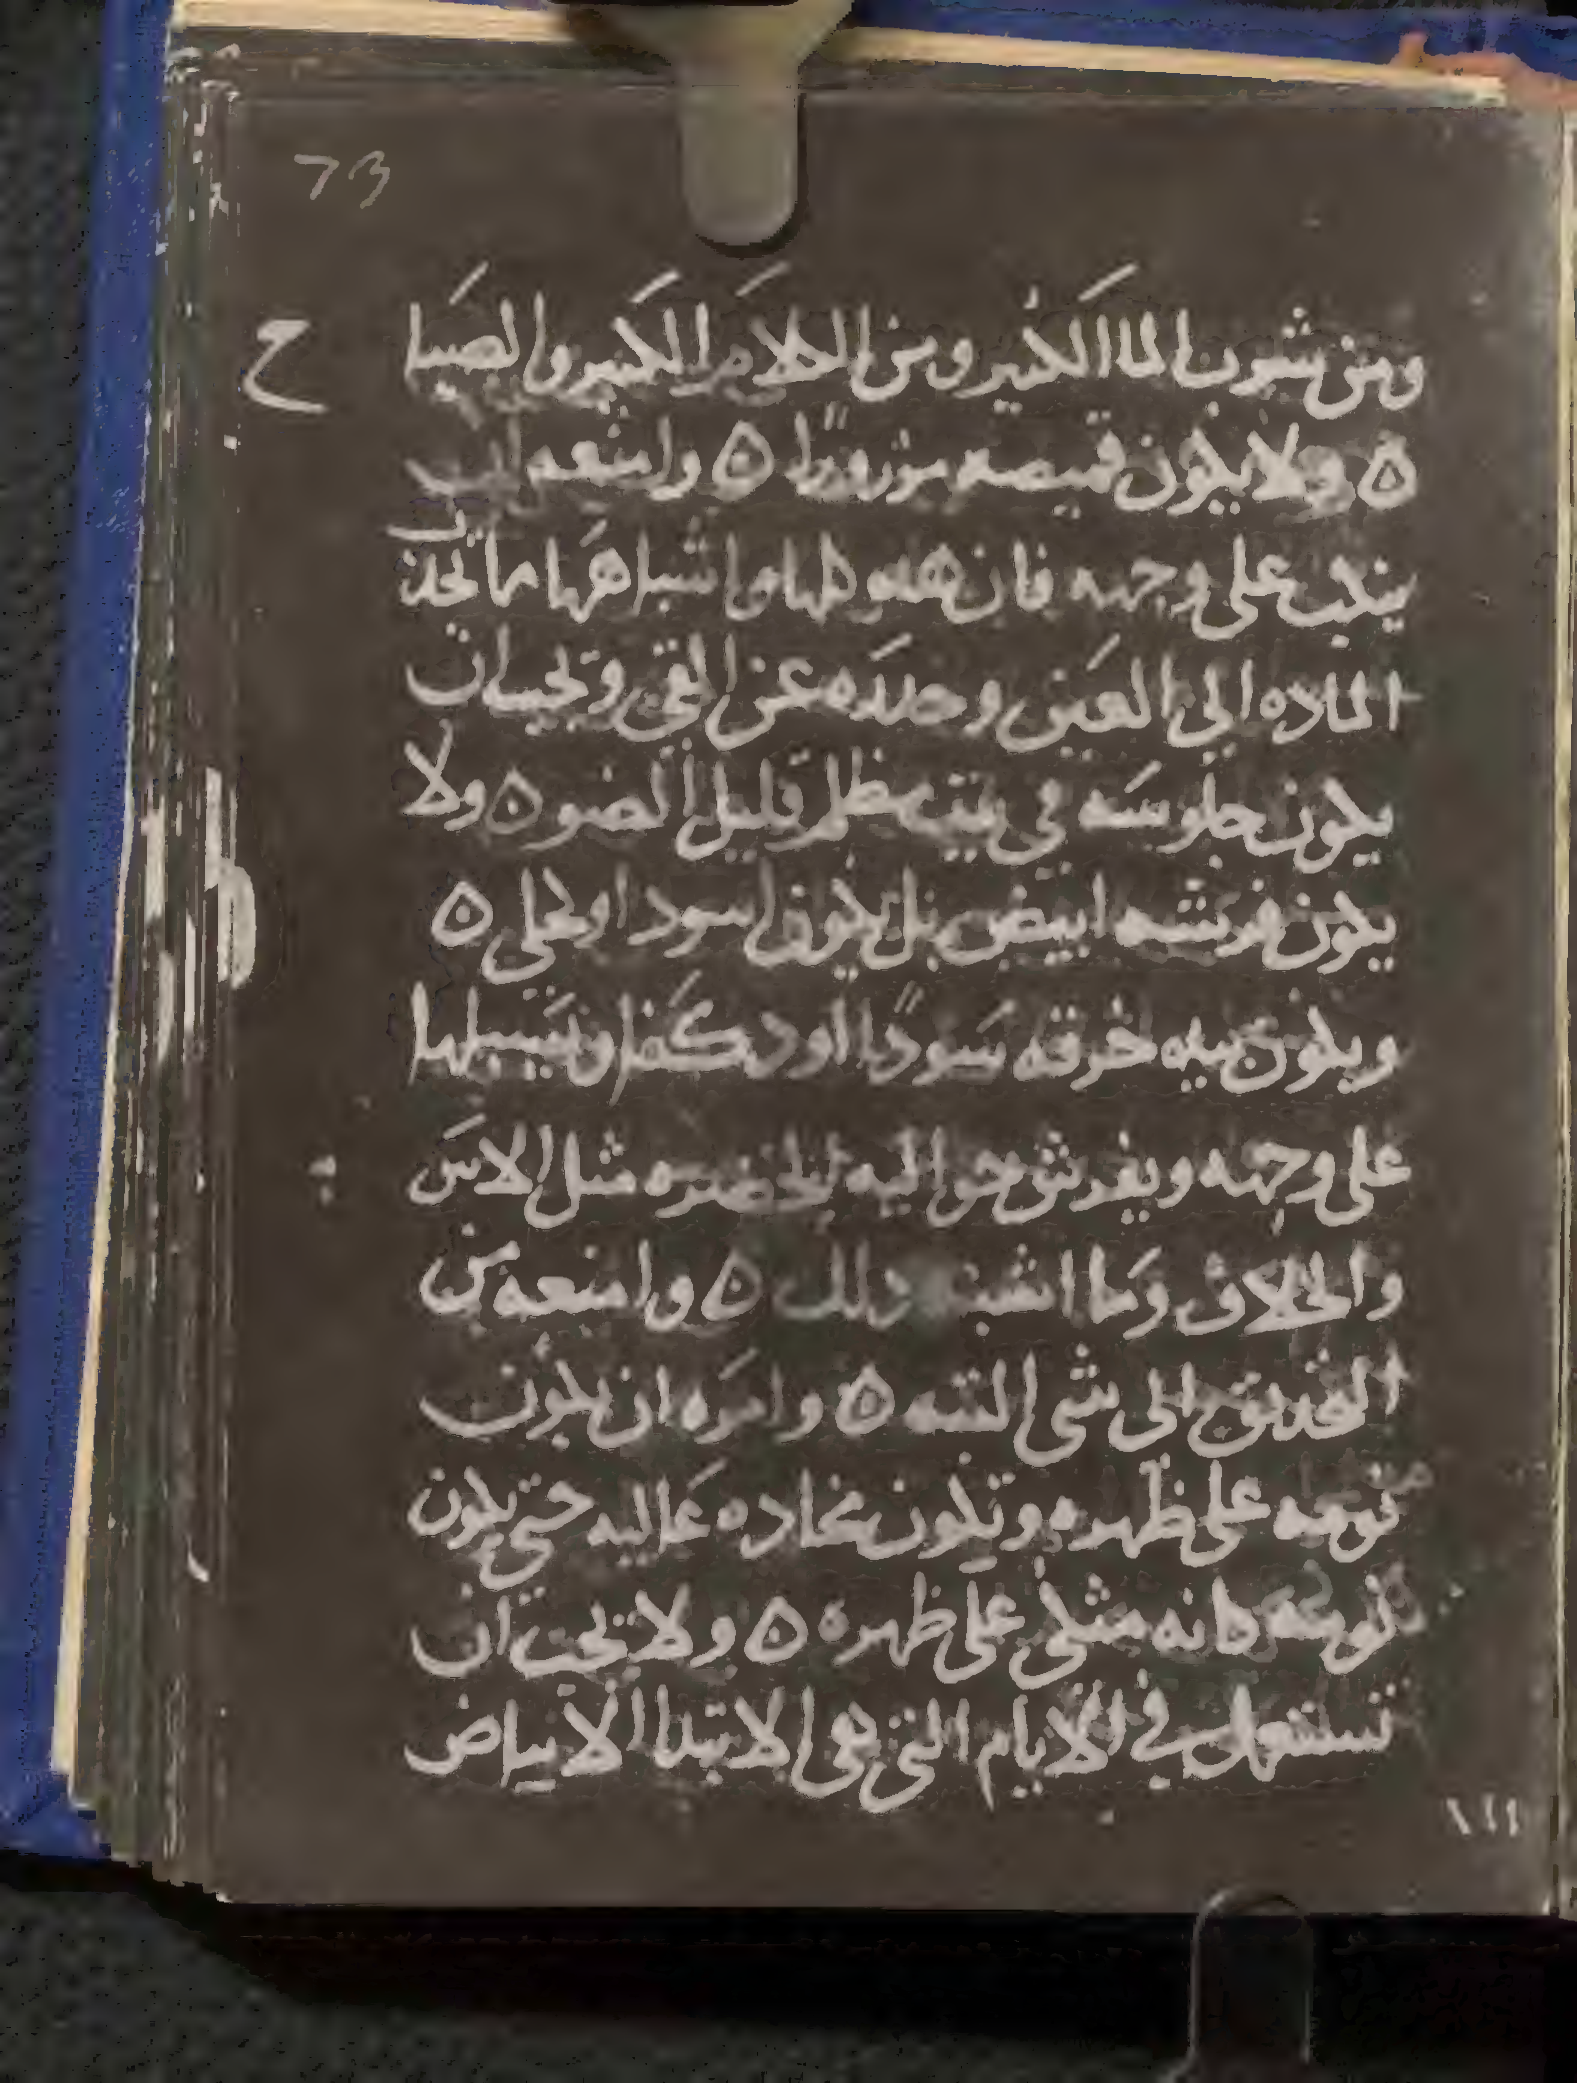 73
ومن شرب الما الكثير ومن الكلام الكثير والصيا ح
ه ولا يكون قميصه مزروراً ه وامنعه ان
ينكب على وجهه فان هده كلها وما اشباهها مما تجذب
الماده الى العين وحده عن القى وتجب ان
يكون جلوسه في بيت مظلم قليل الضو ه ولا
يكون فرشه ابيض بل يكون اسود او كحلى ه
ويكون بيده خرقه سوداً او دكنا ويسبلها
على وجهه ويفرش حواليه الخضره مثل الاس
والخلاف وما اشبه ذلك ه وامنعه من
التحديق الى شى البته ه وامره ان يكون
نومه على ظهره وتكون مخاده عاليه حتى يكون
نومه كانه متكى على ظهره ه ولا تجب ان
تستعمل في الايام التي هي الابتدا الا بياض